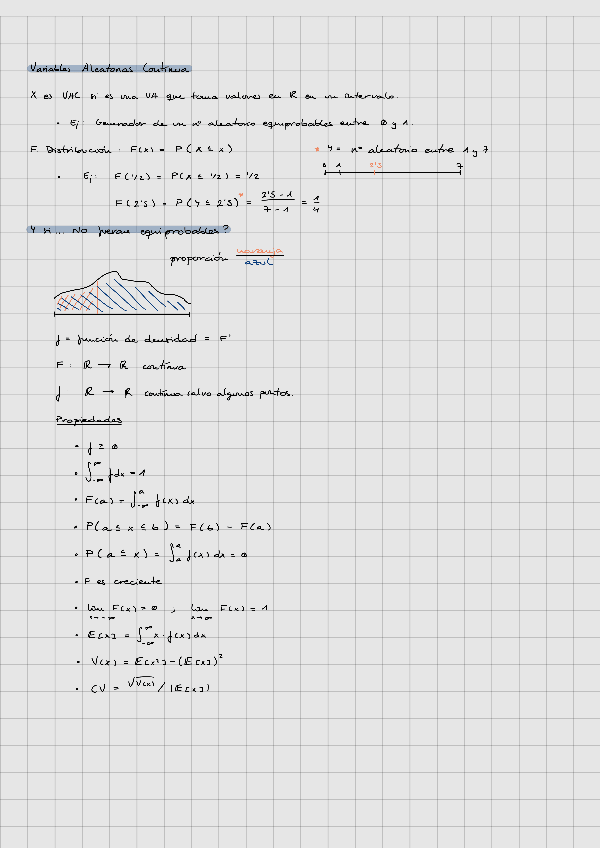 Variables Aleatorias Continua
X es VAC si es una VA que toma valores en ℝ en un intervalo.
• Ej: Generador de un nº aleatorio equiprobables entre 0 y 1.
F. Distribución: F(x) = P(X ≤ x)
* Y = nº aleatorio entre 1 y 7
0 1 2'5 7
• Ej: F(1/2) = P(X ≤ 1/2) = 1/2
F(2'5) = P(Y ≤ 2'5) *= (2'5 - 1)/(7 - 1) = 1/4
Y si... No fueran equiprobables?
proporción naranja/azul
f = función de densidad = F'
F: ℝ → ℝ continua
f ℝ → ℝ continua salvo algunos puntos.
Propiedades
• f ≥ 0
• ∫_{-∞}^{∞} f dx = 1
• F(a) = ∫_{-∞}^{a} f(x) dx
• P(a ≤ x ≤ b) = F(b) - F(a)
• P(a = x) = ∫_{a}^{a} f(x) dx = 0
• F es creciente
• lim_{x→-∞} F(x) = 0 ; lim_{x→∞} F(x) = 1
• E[x] = ∫_{-∞}^{∞} x · f(x) dx
• V(x) = E[x²] - (E[x])²
• CV = √V(x) / |E[x]|